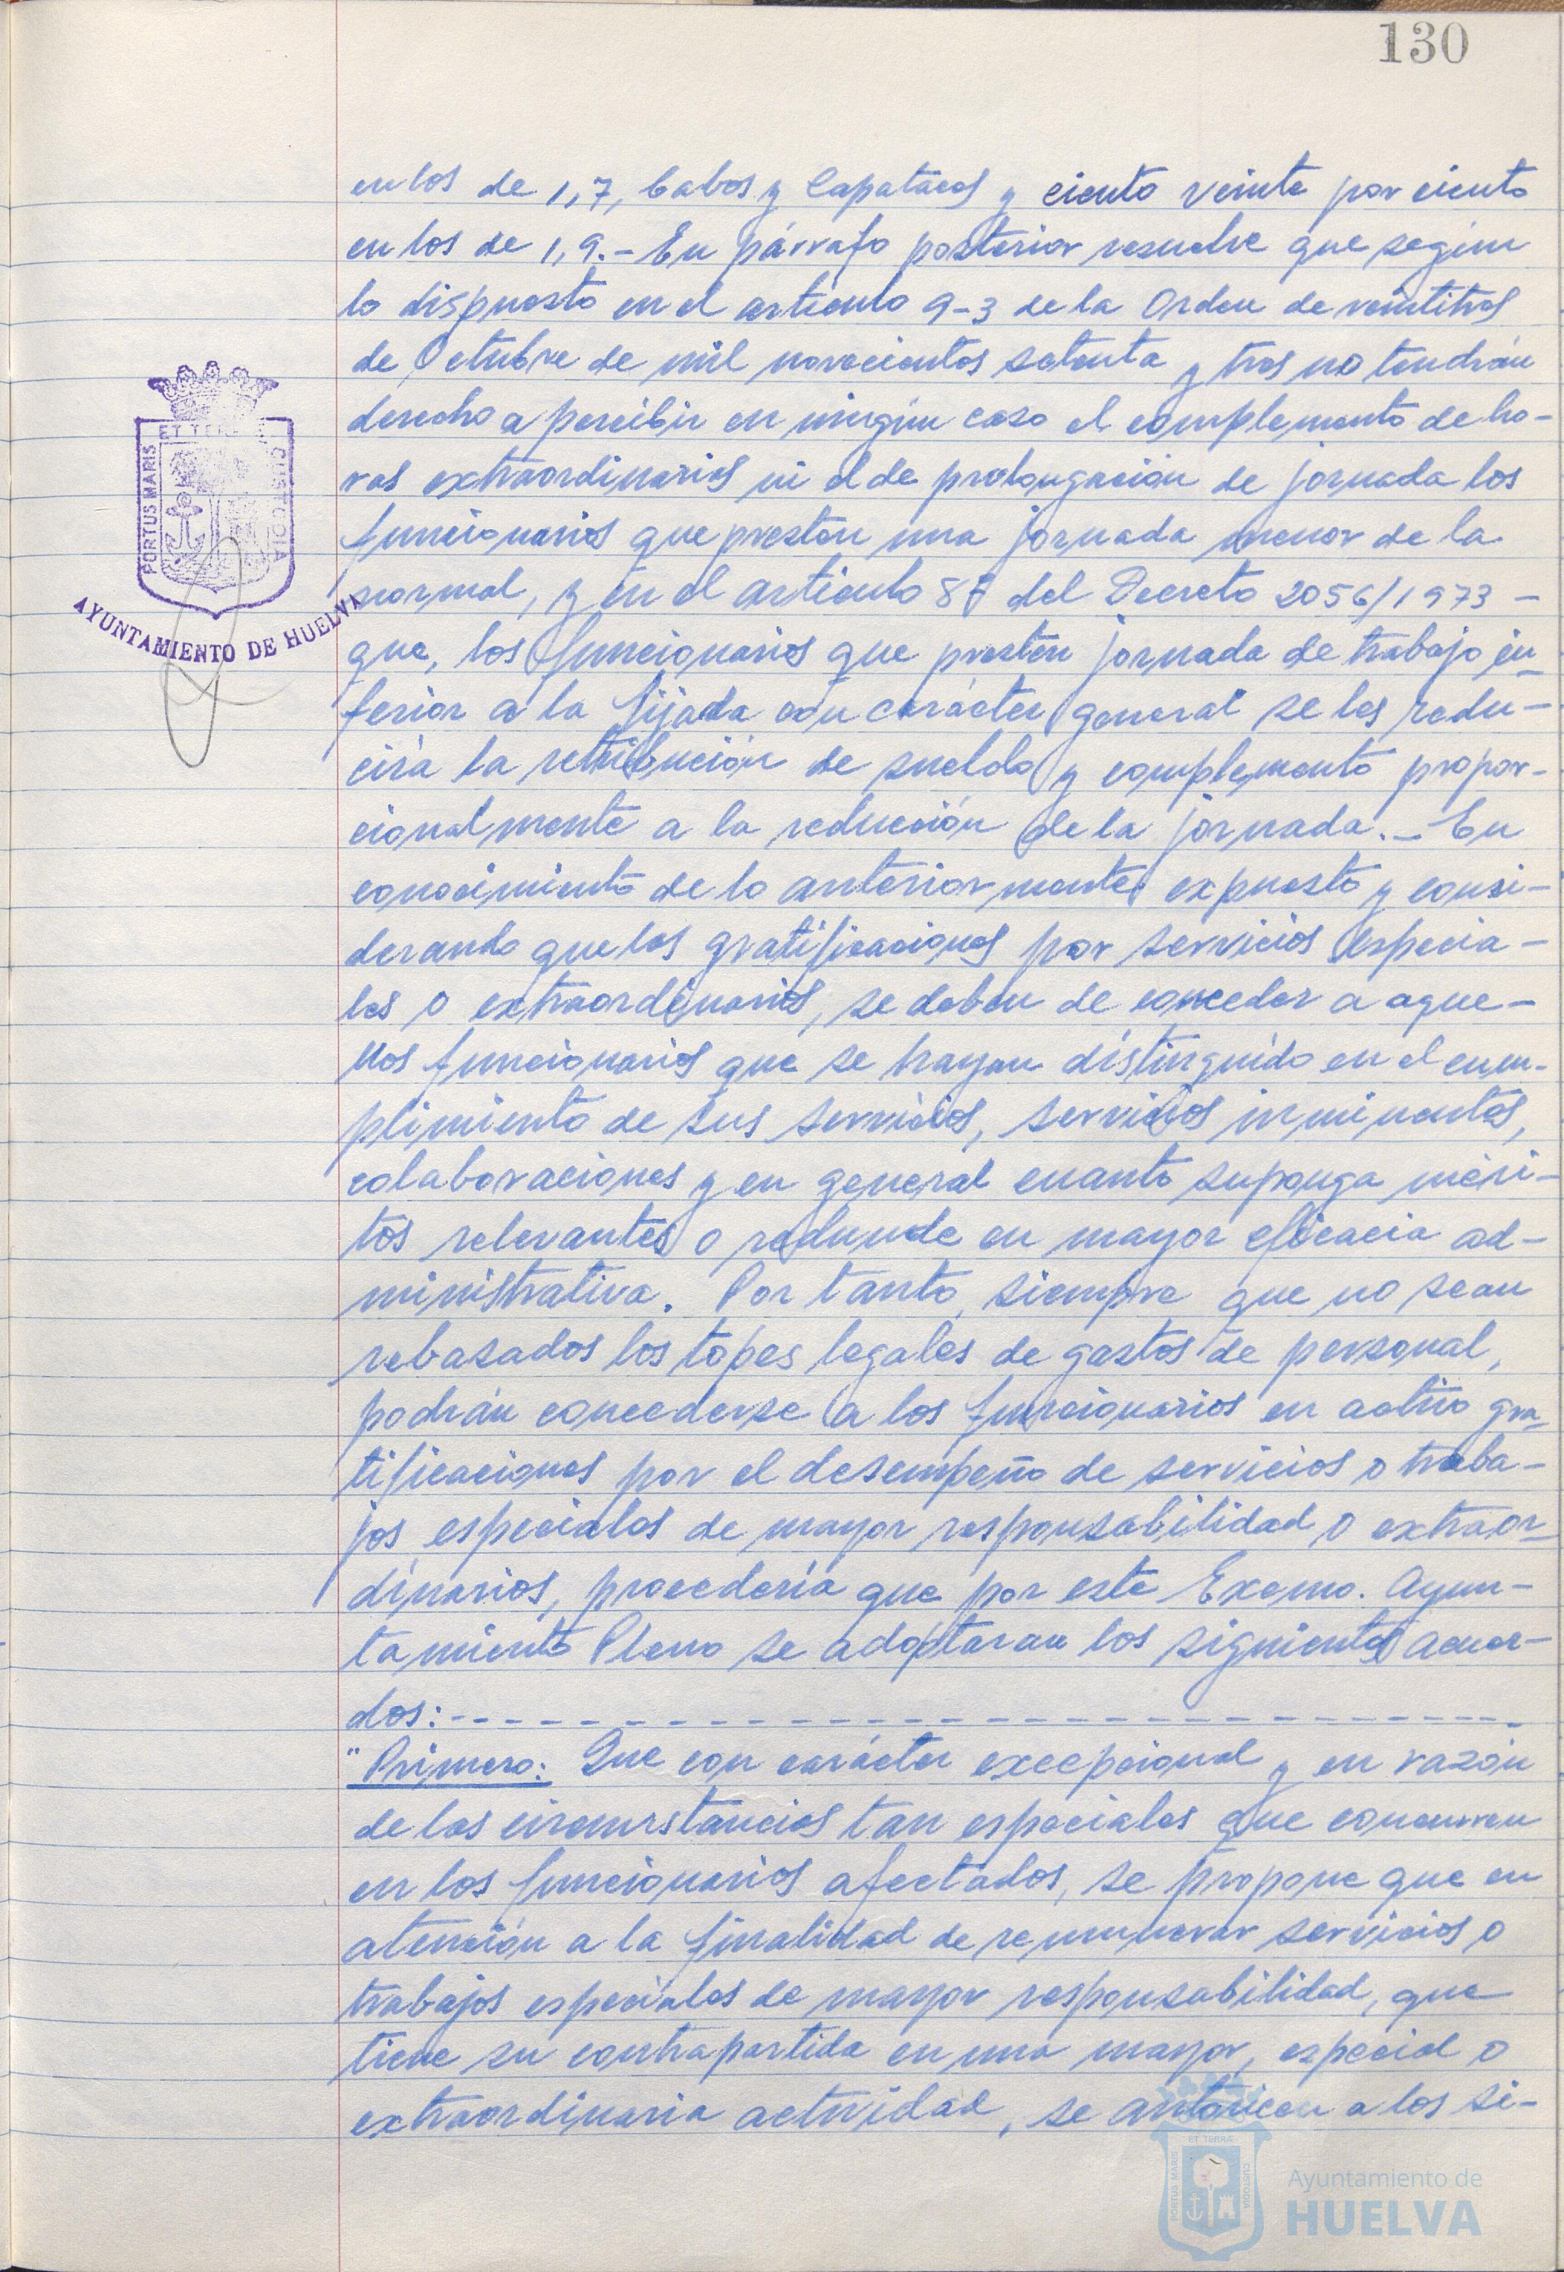 130
en los de 1,7, Cabos y Capataces y ciento veinte por ciento
en los de 1,9.- En párrafo posterior resuelve que según
lo dispuesto en el artículo 9-3 de la Orden de veintitres
de Octubre de mil novecientos setenta y tres no tendrán
derecho a percibir en ningún caso el complemento de ho-
ras extraordinarias ni el de prolongación de jornada los
funcionarios que presten una jornada menor de la
normal, y en el artículo 8º del Decreto 2056/1973 -
que, los funcionarios que presten jornada de trabajo in-
ferior a la fijada con carácter general se les redu-
cirá la retribución de sueldo y complemento propor-
cionalmente a la reducción de la jornada.- En
conocimiento de lo anteriormente expuesto y consi-
derando que las gratificaciones por servicios especia-
les o extraordinarios, se deben de conceder a aque-
llos funcionarios que se hayan distinguido en el cum-
plimiento de sus servicios, servicios inminentes,
colaboraciones y en general cuanto suponga méri-
tos relevantes o redunde en mayor eficacia ad-
ministrativa. Por tanto, siempre que no sean
rebasados los topes legales de gastos de personal,
podrán concederse a los funcionarios en activo gra-
tificaciones por el desempeño de servicios o traba-
jos especiales de mayor responsabilidad o extraor-
dinarios, procedería que por este Excmo. Ayun-
tamiento Pleno se adoptaran los siguientes acuer-
dos:- - - - - - - - - - - - - - - - - - - - - - - - -
"Primero: Que con carácter excepcional y en razón
de las circunstancias tan especiales que concurren
en los funcionarios afectados, se propone que en
atención a la finalidad de remunerar servicios o
trabajos especiales de mayor responsabilidad, que
tiene su contrapartida en una mayor, especial o
extraordinaria actividad, se autoricen a los si-
PORTUS MARIS
ET TERRAE
CUSTODIA
AYUNTAMIENTO DE HUELVA
PORTUS MARIS
ET TERRAE
CUSTODIA
Ayuntamiento de
HUELVA